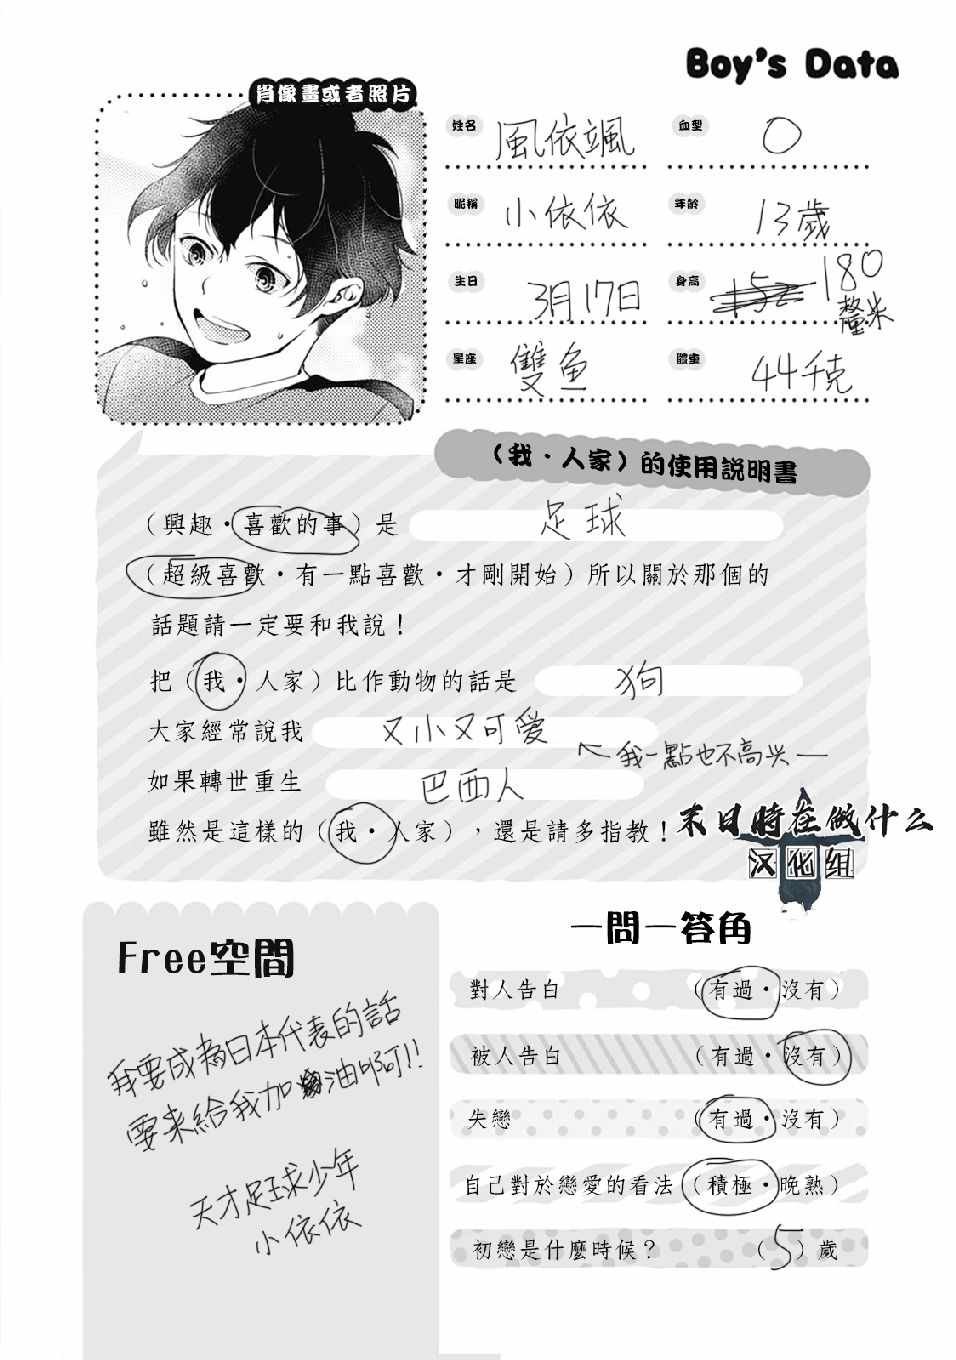 Boy's Data
肖像畫或者照片
姓名 風依颯
血型 O
昵稱 小依依
年齡 13歲
生日 3月17日
身高 152 180釐米
星座 雙魚
體重 44千克
（我・人家）的使用說明書
（興趣・喜歡的事）是 足球
（超級喜歡・有一點喜歡・才剛開始）所以關於那個的
話題請一定要和我說！
把（我・人家）比作動物的話是 狗
大家經常說我 又小又可愛
←我一點也不高兴
如果轉世重生 巴西人
雖然是這樣的（我・人家），還是請多指教！
末日時在做什么
汉化组
Free空間
我要成為日本代表的話
要来給我加油啊!!
天才足球少年
小依依
一問一答角
對人告白 （有過・沒有）
被人告白 （有過・沒有）
失戀 （有過・沒有）
自己對於戀愛的看法（積極・晚熟）
初戀是什麼時候？ （5）歲